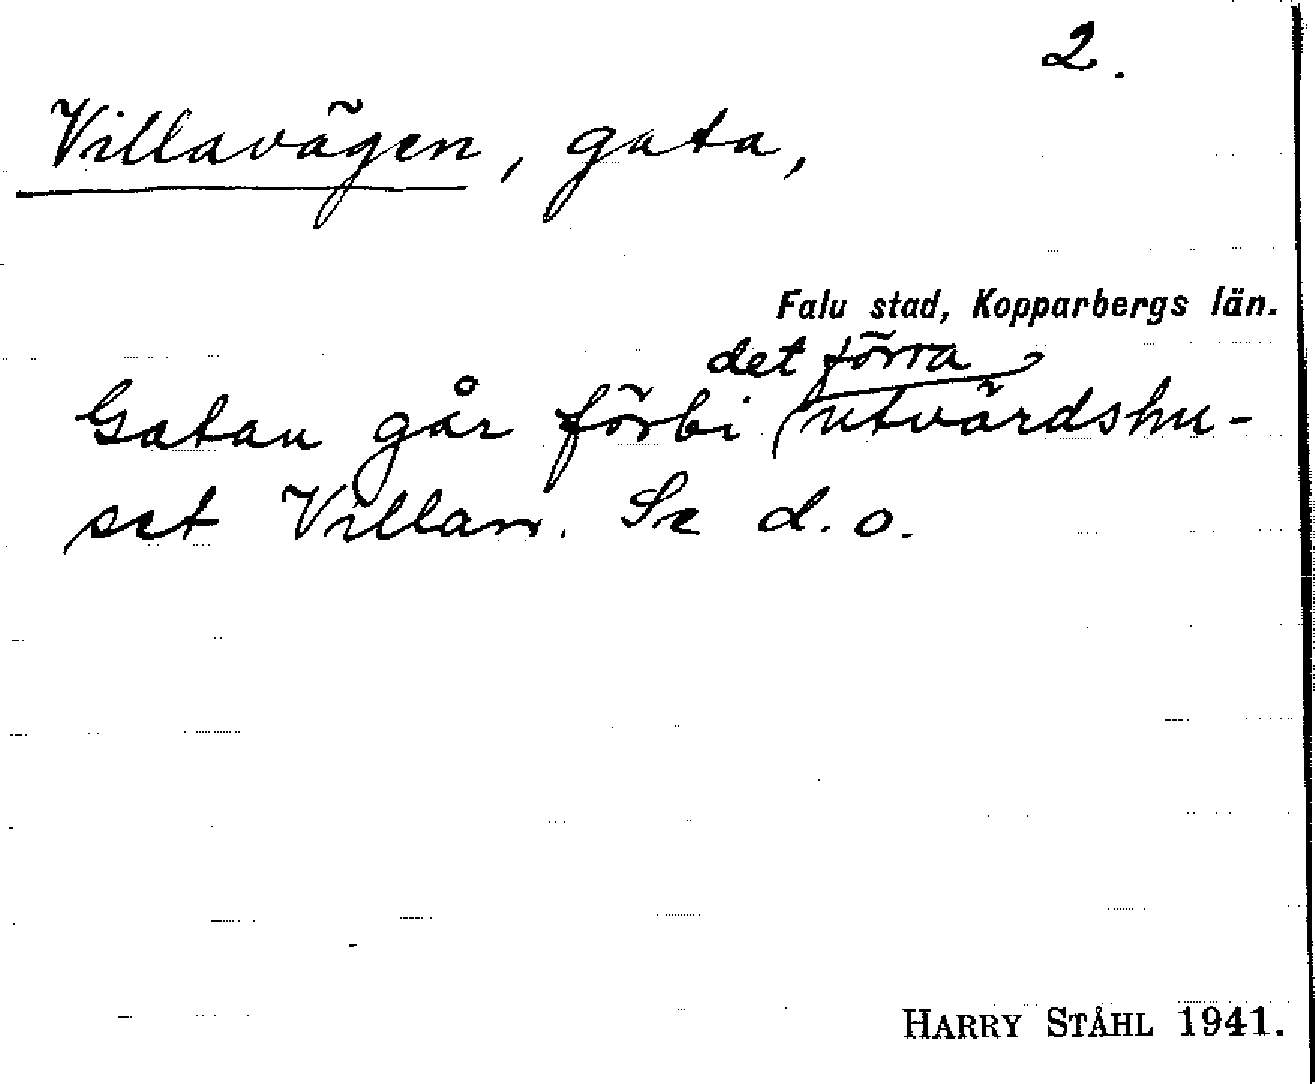 2.
Villavägen, gata,
Falu stad, Kopparbergs län.
det förra
Gatan går förbi utvärdshu-
set Villan. Se d.o.
HARRY STÅHL 1941.